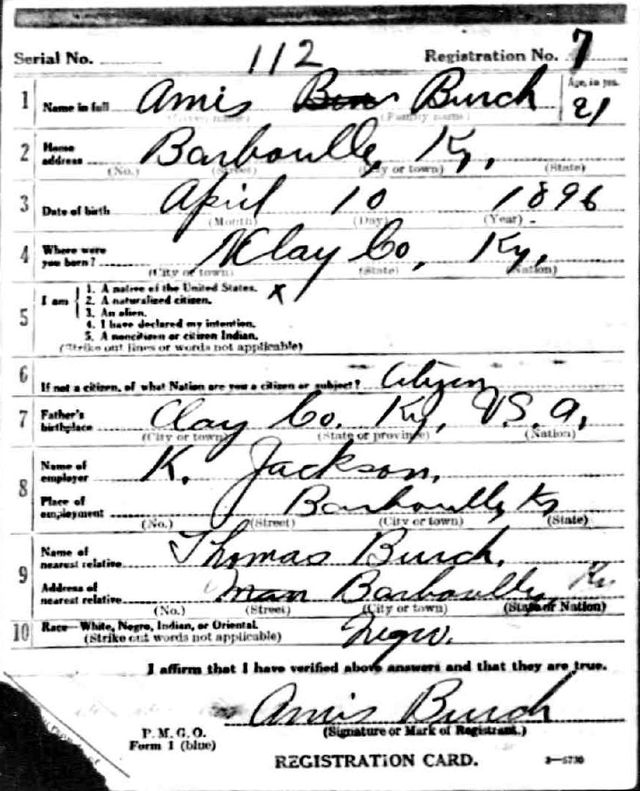 Serial No. 112 Registration No. 7
1 Name in full Amis Burch Age, in yrs. 21
(Given name) (Family name)
2 Home address Barbourville, Ky.
(No.) (Street) (City or town) (State)
3 Date of birth April 10 1896
(Month) (Day) (Year)
4 Where were you born? Clay Co, Ky,
(City or town) (State) (Nation)
5 I am
1. A native of the United States. x
2. A naturalized citizen.
3. An alien.
4. I have declared my intention.
5. A noncitizen or citizen Indian.
(Strike out lines or words not applicable)
6 If not a citizen, of what Nation are you a citizen or subject? Citizen
7 Father's birthplace Clay Co. Ky, U.S.A.
(City or town) (State or province) (Nation)
8 Name of employer K. Jackson,
Place of employment Barbourville, Ky
(No.) (Street) (City or town) (State)
9 Name of nearest relative Thomas Burch,
Address of nearest relative Barbourville, Ky
(No.) (Street) (City or town) (State or Nation)
10 Race—White, Negro, Indian, or Oriental. Negro.
(Strike out words not applicable)
I affirm that I have verified above answers and that they are true.
Amis Burch
(Signature or Mark of Registrant.)
P. M. G. O.
Form 1 (blue)
REGISTRATION CARD.
3—5730